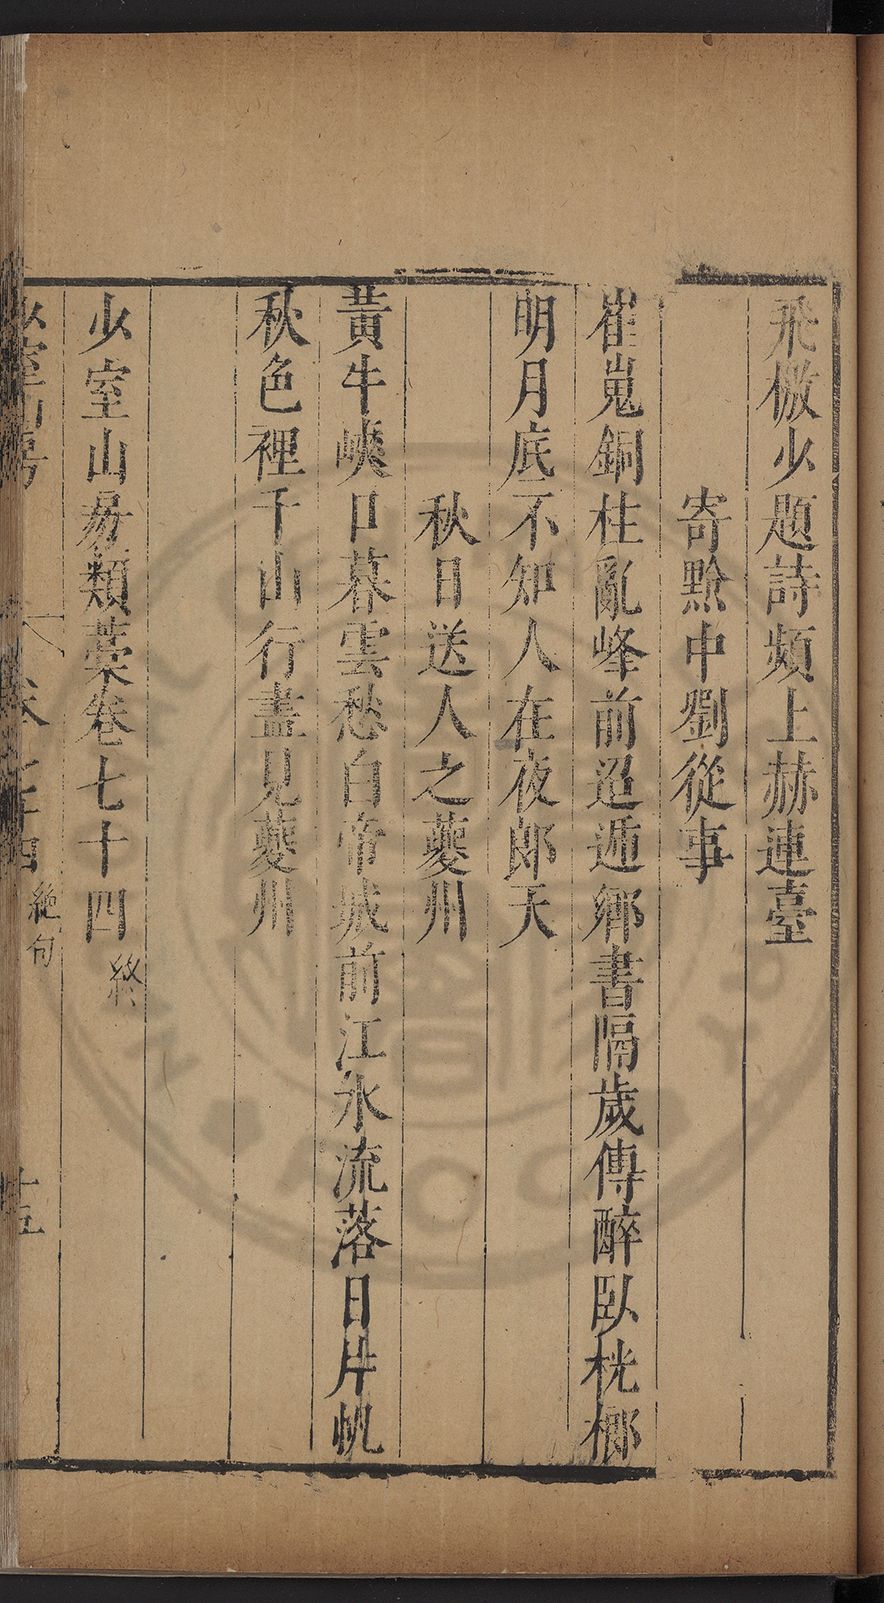 飛檄少題詩頻上赫連臺
寄黔中劉從事
崔嵬銅柱亂峰前迢遞鄉書隔歲傳醉臥桄榔
明月底不知人在夜郎天
秋日送人之夔州
黃牛峽口暮雲愁白帝城前江水流落日片帆
秋色裡千山行盡見夔州
少室山房類藁卷七十四 終
少室山房 卷七十四 絶句 十五